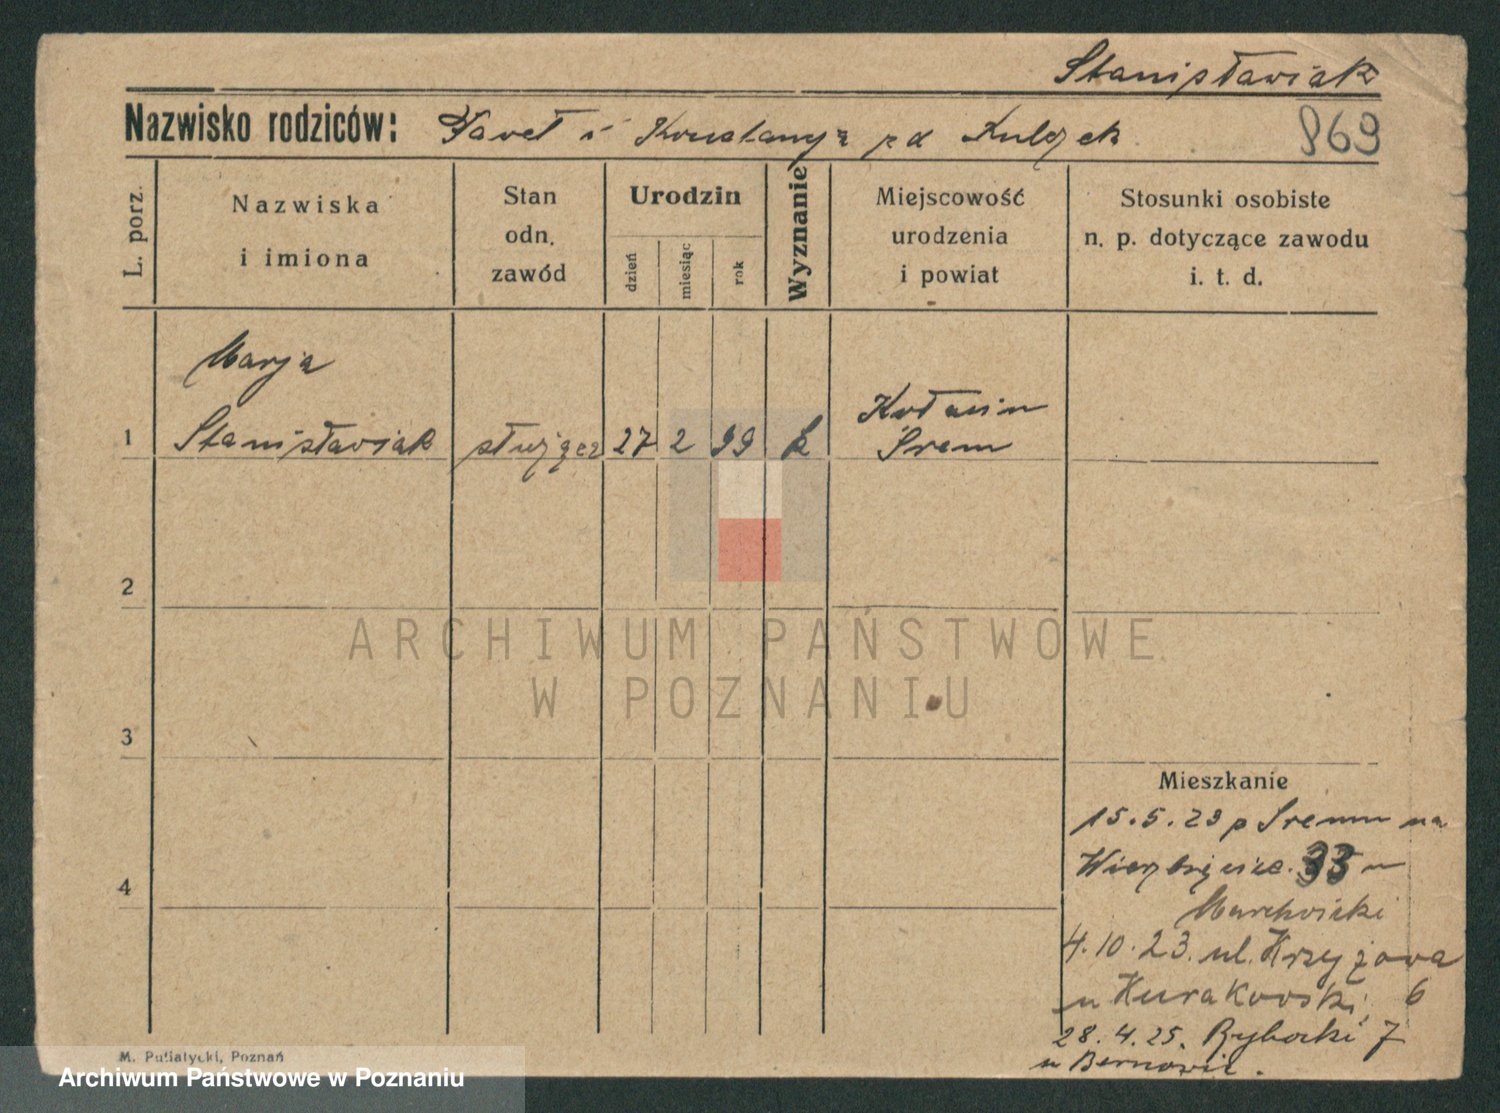 Stanisławiak
Nazwisko rodziców: Paweł i Konstancja zd Kulczak
869
L. porz.
Nazwiska
i imiona
Stan
odn.
zawód
Urodzin
dzień
miesiąc
rok
Wyznanie
Miejscowość
urodzenia
i powiat
Stosunki osobiste
n. p. dotyczące zawodu
i. t. d.
Marja
1 Stanisławiak służąca 27 2 99 k
Śrem
2
3
4
Mieszkanie
15.5.23 z Śremu na
33 u
4.10.23. ul. Krzyżowa
u Kurakowski 6
28.4.25. Rybacki 7
u
M. Putiatycki, Poznań
ARCHIWUM PAŃSTWOWE
W POZNANIU
Archiwum Państwowe w Poznaniu